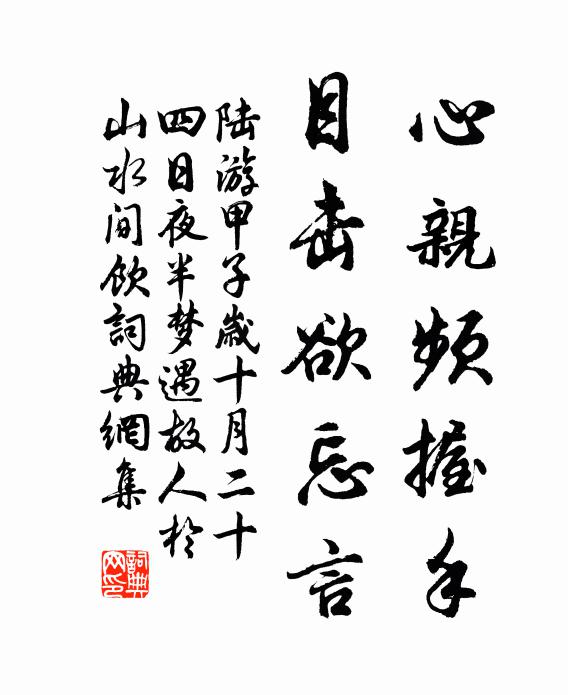 心親頻握手
目击欲忘言
陆游甲子歲十月二十
四日夜半梦遇故人於
山水间飲詞典網集
詞典
网印